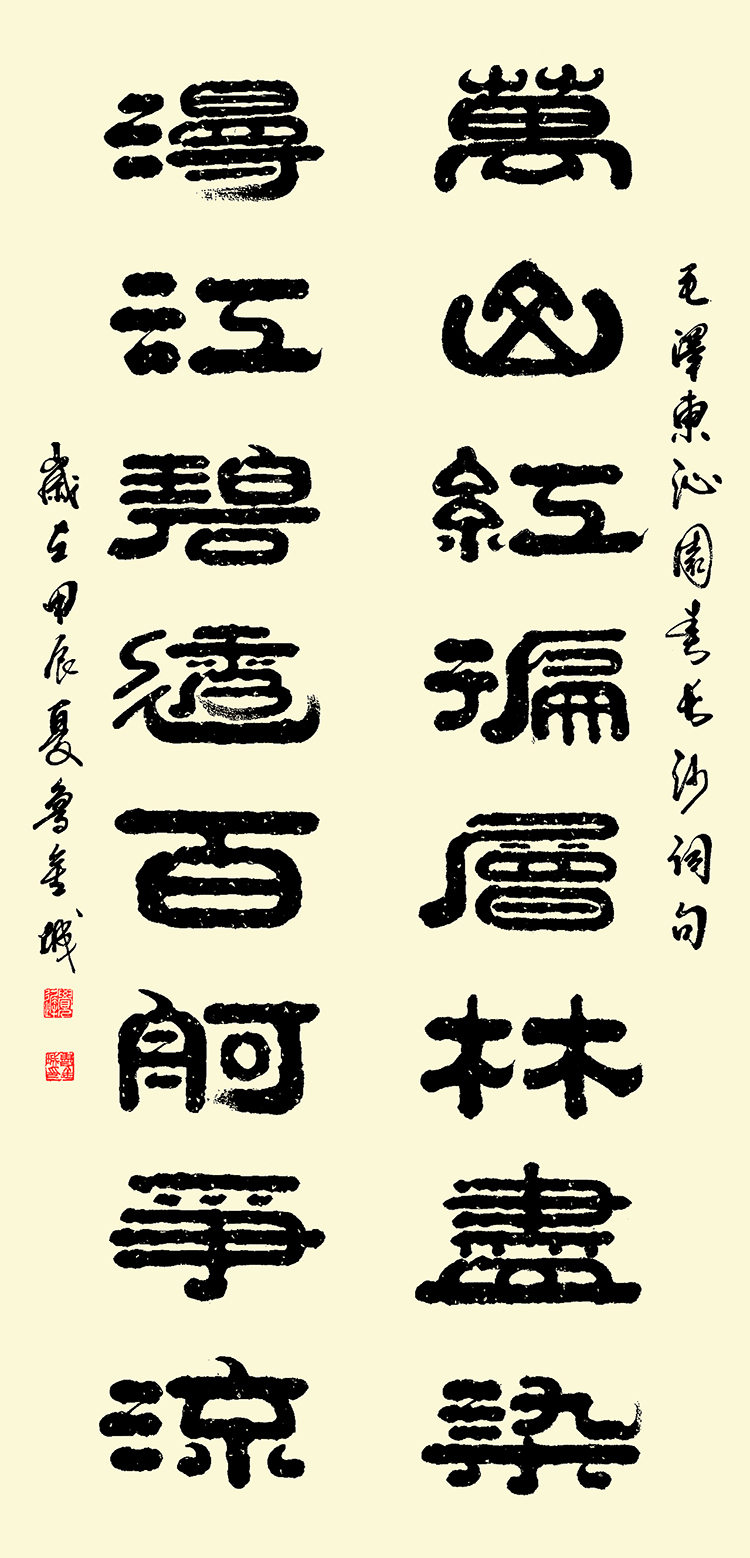 毛澤東沁園春長沙詞句
萬山紅徧層林盡染
漫江碧透百舸爭涼
歲在甲辰夏魯金城